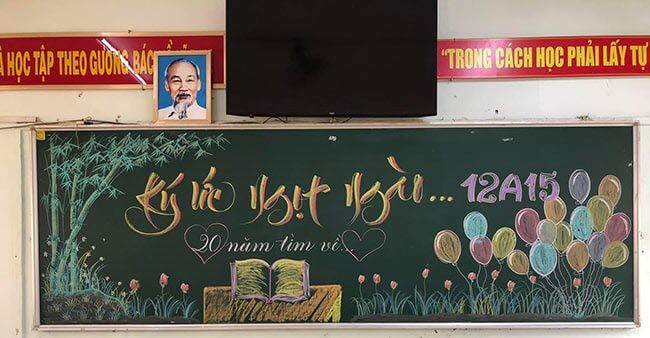 À HỌC TẬP THEO GƯƠNG BÁC
"TRONG CÁCH HỌC PHẢI LẤY TỰ
Ký ức ngọt ngào... 12A15
20 năm tìm về...